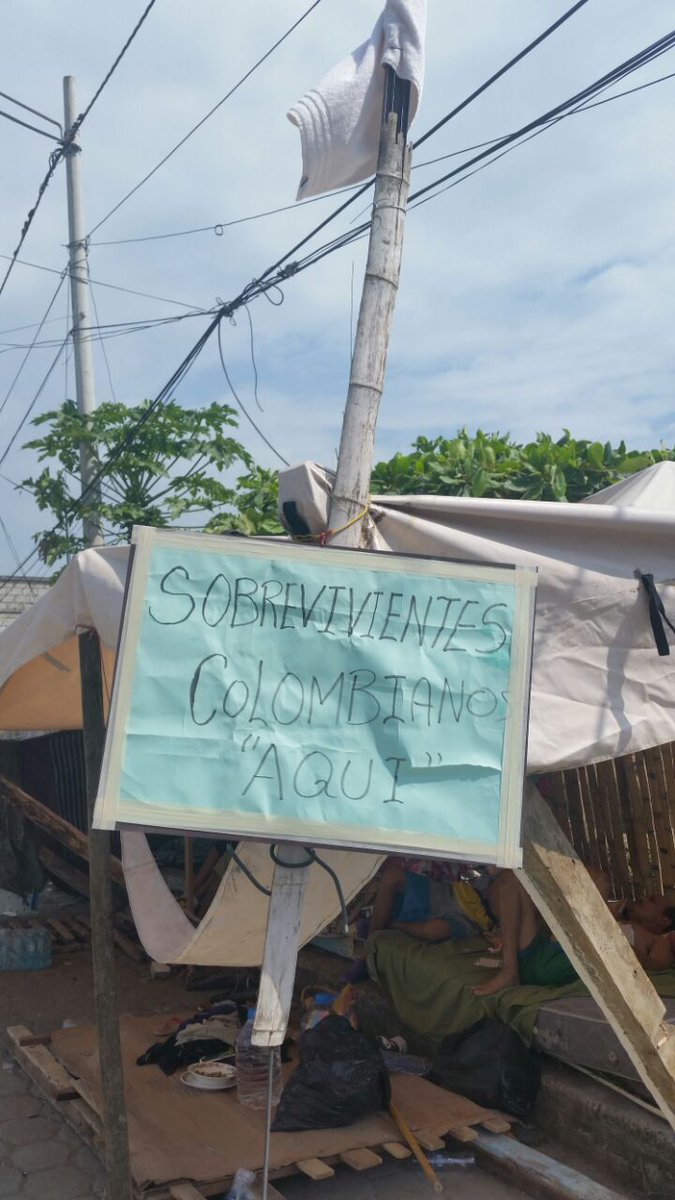 SOBREVIVIENTES
COLOMBIANOS
"AQUI"